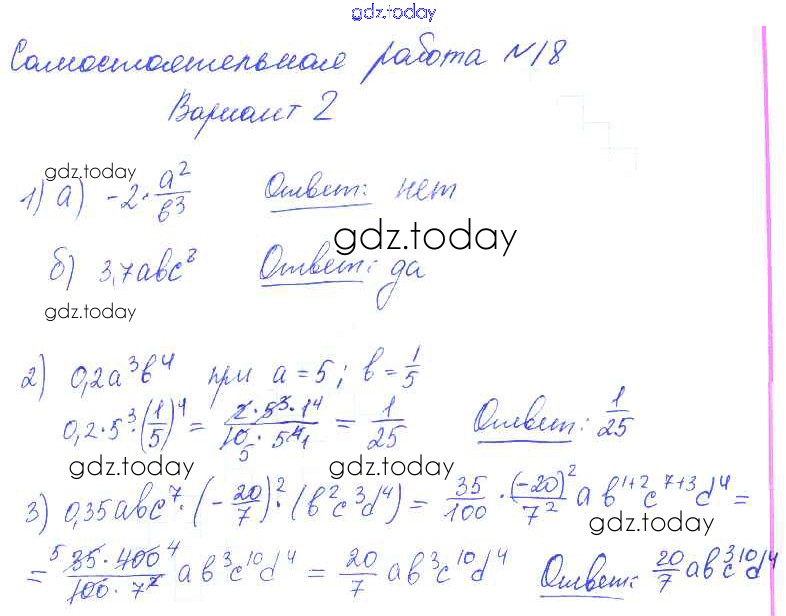 gdz.today
Самостоятельная работа №18
Вариант 2
gdz.today
1) а) -2·a²/b³ Ответ: нет
gdz.today
б) 3,7abc² Ответ: да
gdz.today
2) 0,2a³b⁴ при a=5; b=1/5
0,2·5³·(1/5)⁴ = 2·5³·1⁴/10·5⁴ = 1/25 Ответ: 1/25
gdz.today gdz.today
3) 0,35abc⁷·(-20/7)²·(b²c³d⁴) = 35/100·(-20)²/7² a b¹⁺²c⁷⁺³d⁴ =
gdz.today
= 35·400/100·7² ab³c¹⁰d⁴ = 20/7 ab³c¹⁰d⁴ Ответ: 20/7 ab³c¹⁰d⁴
gdz.today